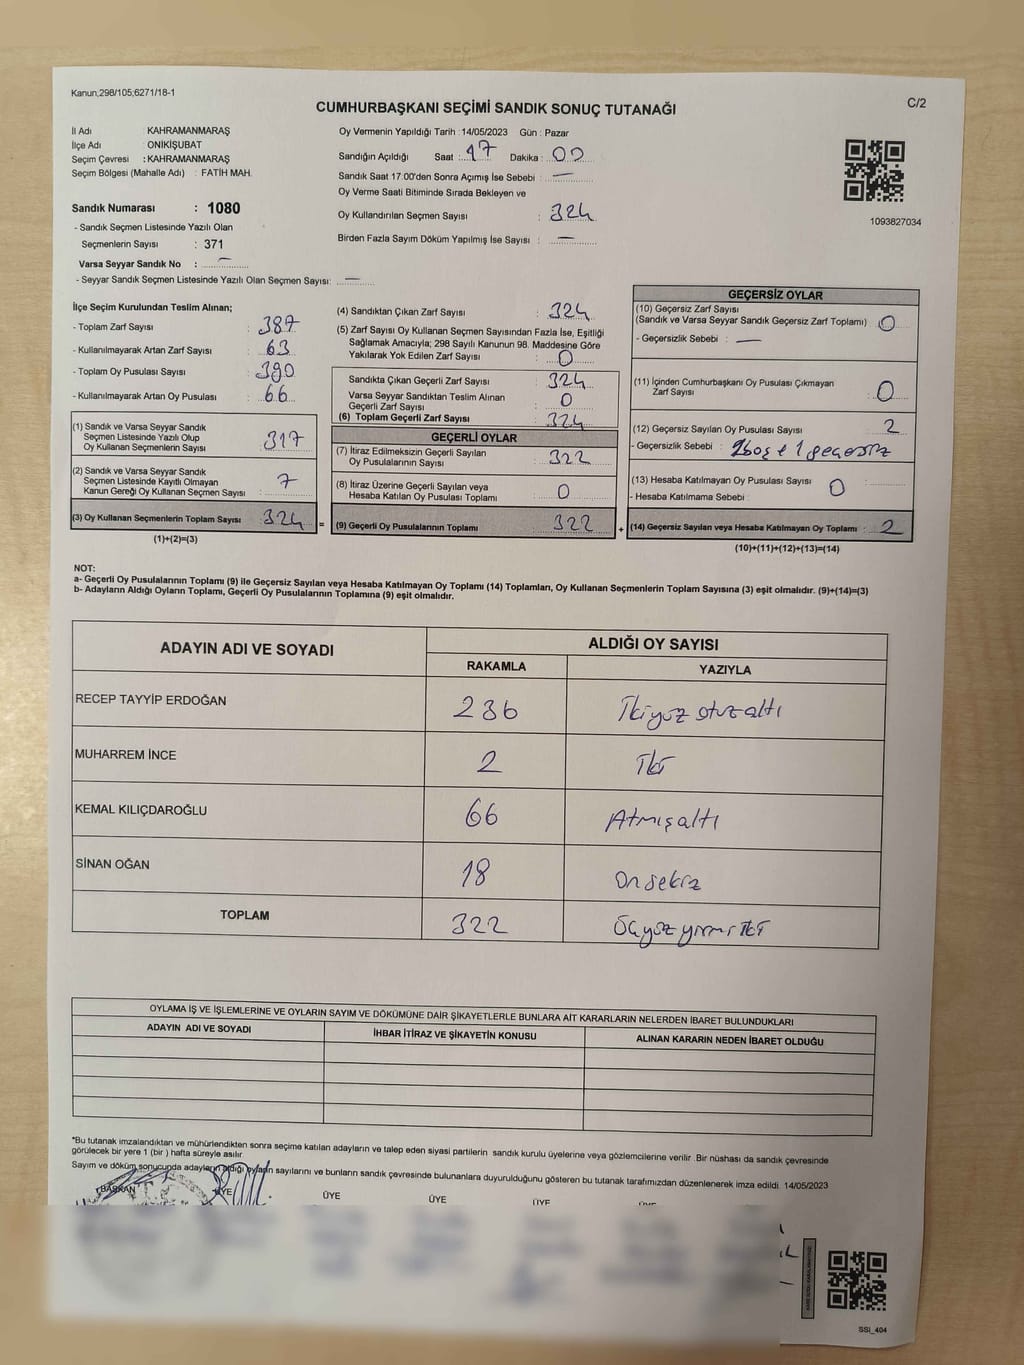 Kanun,298/105;6271/18-1
CUMHURBAŞKANI SEÇİMİ SANDIK SONUÇ TUTANAĞI
C/2
İl Adı : KAHRAMANMARAŞ
İlçe Adı : ONİKİŞUBAT
Seçim Çevresi : KAHRAMANMARAŞ
Seçim Bölgesi (Mahalle Adı) : FATİH MAH.
Sandık Numarası : 1080
- Sandık Seçmen Listesinde Yazılı Olan
Seçmenlerin Sayısı : 371
Varsa Seyyar Sandık No : —
- Seyyar Sandık Seçmen Listesinde Yazılı Olan Seçmen Sayısı: —
Oy Vermenin Yapıldığı Tarih : 14/05/2023 Gün : Pazar
Sandığın Açıldığı Saat : 17 Dakika : 00
Sandık Saat 17:00'den Sonra Açımış İse Sebebi : —
Oy Verme Saati Bitiminde Sırada Bekleyen ve
Oy Kullandırılan Seçmen Sayısı : 324
Birden Fazla Sayım Döküm Yapılmış İse Sayısı : —
1093827034
İlçe Seçim Kurulundan Teslim Alınan;
- Toplam Zarf Sayısı : 387
- Kullanılmayarak Artan Zarf Sayısı : 63
- Toplam Oy Pusulası Sayısı : 390
- Kullanılmayarak Artan Oy Pusulası : 66
(1) Sandık ve Varsa Seyyar Sandık
Seçmen Listesinde Yazılı Olup
Oy Kullanan Seçmenlerin Sayısı : 317
(2) Sandık ve Varsa Seyyar Sandık
Seçmen Listesinde Kayıtlı Olmayan
Kanun Gereği Oy Kullanan Seçmen Sayısı : 7
(3) Oy Kullanan Seçmenlerin Toplam Sayısı : 324
(1)+(2)=(3)
(4) Sandıktan Çıkan Zarf Sayısı : 324
(5) Zarf Sayısı Oy Kullanan Seçmen Sayısından Fazla İse, Eşitliği
Sağlamak Amacıyla; 298 Sayılı Kanunun 98. Maddesine Göre
Yakılarak Yok Edilen Zarf Sayısı : 0
Sandıkta Çıkan Geçerli Zarf Sayısı : 324
Varsa Seyyar Sandıktan Teslim Alınan
Geçerli Zarf Sayısı : 0
(6) Toplam Geçerli Zarf Sayısı : 324
GEÇERLİ OYLAR
(7) İtiraz Edilmeksizin Geçerli Sayılan
Oy Pusulalarının Sayısı : 322
(8) İtiraz Üzerine Geçerli Sayılan veya
Hesaba Katılan Oy Pusulası Toplamı : 0
= (9) Geçerli Oy Pusulalarının Toplamı : 322 +
GEÇERSİZ OYLAR
(10) Geçersiz Zarf Sayısı
(Sandık ve Varsa Seyyar Sandık Geçersiz Zarf Toplamı) : 0
- Geçersizlik Sebebi : —
(11) İçinden Cumhurbaşkanı Oy Pusulası Çıkmayan
Zarf Sayısı : 0
(12) Geçersiz Sayılan Oy Pusulası Sayısı : 2
- Geçersizlik Sebebi : 1boş+1geçersiz
(13) Hesaba Katılmayan Oy Pusulası Sayısı : 0
- Hesaba Katılmama Sebebi :
(14) Geçersiz Sayılan veya Hesaba Katılmayan Oy Toplamı : 2
(10)+(11)+(12)+(13)=(14)
NOT:
a- Geçerli Oy Pusulalarının Toplamı (9) ile Geçersiz Sayılan veya Hesaba Katılmayan Oy Toplamı (14) Toplamları, Oy Kullanan Seçmenlerin Toplam Sayısına (3) eşit olmalıdır. (9)+(14)=(3)
b- Adayların Aldığı Oyların Toplamı, Geçerli Oy Pusulalarının Toplamına (9) eşit olmalıdır.
ADAYIN ADI VE SOYADI ALDIĞI OY SAYISI
RAKAMLA YAZIYLA
RECEP TAYYİP ERDOĞAN 236 İkiyüz otuzaltı
MUHARREM İNCE 2 İki
KEMAL KILIÇDAROĞLU 66 Atmışaltı
SİNAN OĞAN 18 Onsekiz
TOPLAM 322 Üçyüzyirmi İki
OYLAMA İŞ VE İŞLEMLERİNE VE OYLARIN SAYIM VE DÖKÜMÜNE DAİR ŞİKAYETLERLE BUNLARA AİT KARARLARIN NELERDEN İBARET BULUNDUKLARI
ADAYIN ADI VE SOYADI İHBAR İTİRAZ VE ŞİKAYETİN KONUSU ALINAN KARARIN NEDEN İBARET OLDUĞU
*Bu tutanak imzalandıktan ve mühürlendikten sonra seçime katılan adayların ve talep eden siyasi partilerin sandık kurulu üyelerine veya gözlemcilerine verilir. Bir nüshası da sandık çevresinde
görülecek bir yere 1 (bir ) hafta süreyle asılır.
Sayım ve döküm sonucunda adayların aldığı oyların sayılarını ve bunların sandık çevresinde bulunanlara duyurulduğunu gösteren bu tutanak tarafımızdan düzenlenerek imza edildi. 14/05/2023
BAŞKAN ÜYE ÜYE ÜYE ÜYE
SSİ_404